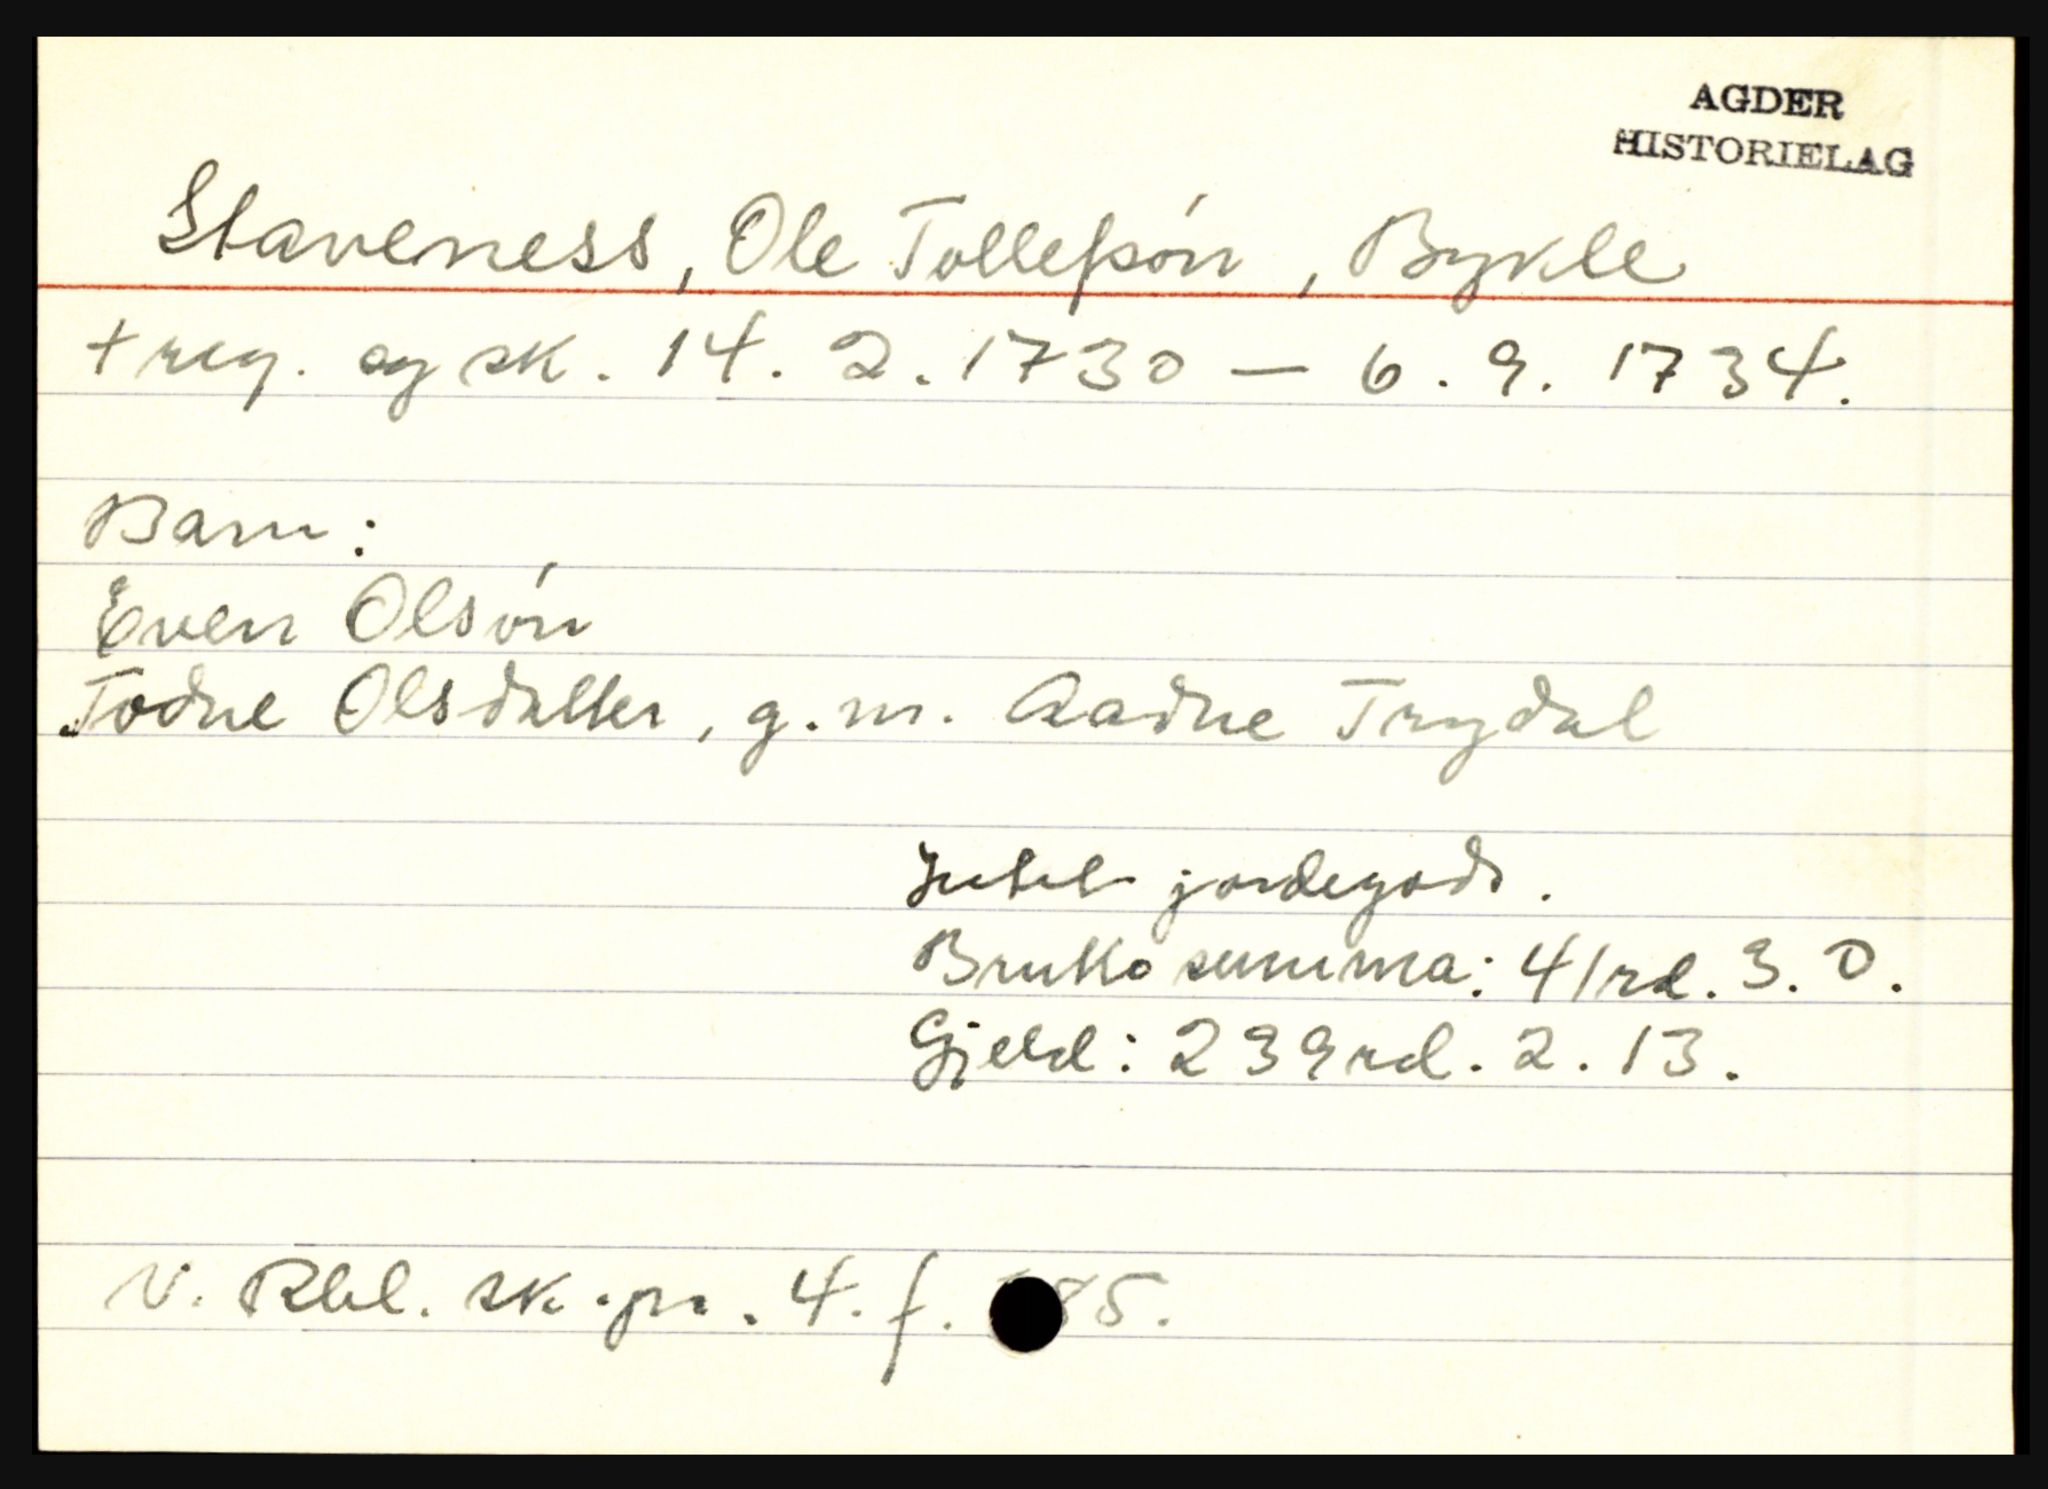 AGDER
HISTORIELAG
Staveness, Ole Tollefsón, Bykle
+ reg. og sk. 14. 2. 1730 — 6. 9. 1734.
Barn:
Even Olsón
Todne Olsdatter, g. m. Aadne Trydal
Intet jordegods.
Brutto summa: 41 rd. 3. 0.
Gjeld: 239 rd. 2. 13.
N. Rbl. sk. pr. 4. f. 85.